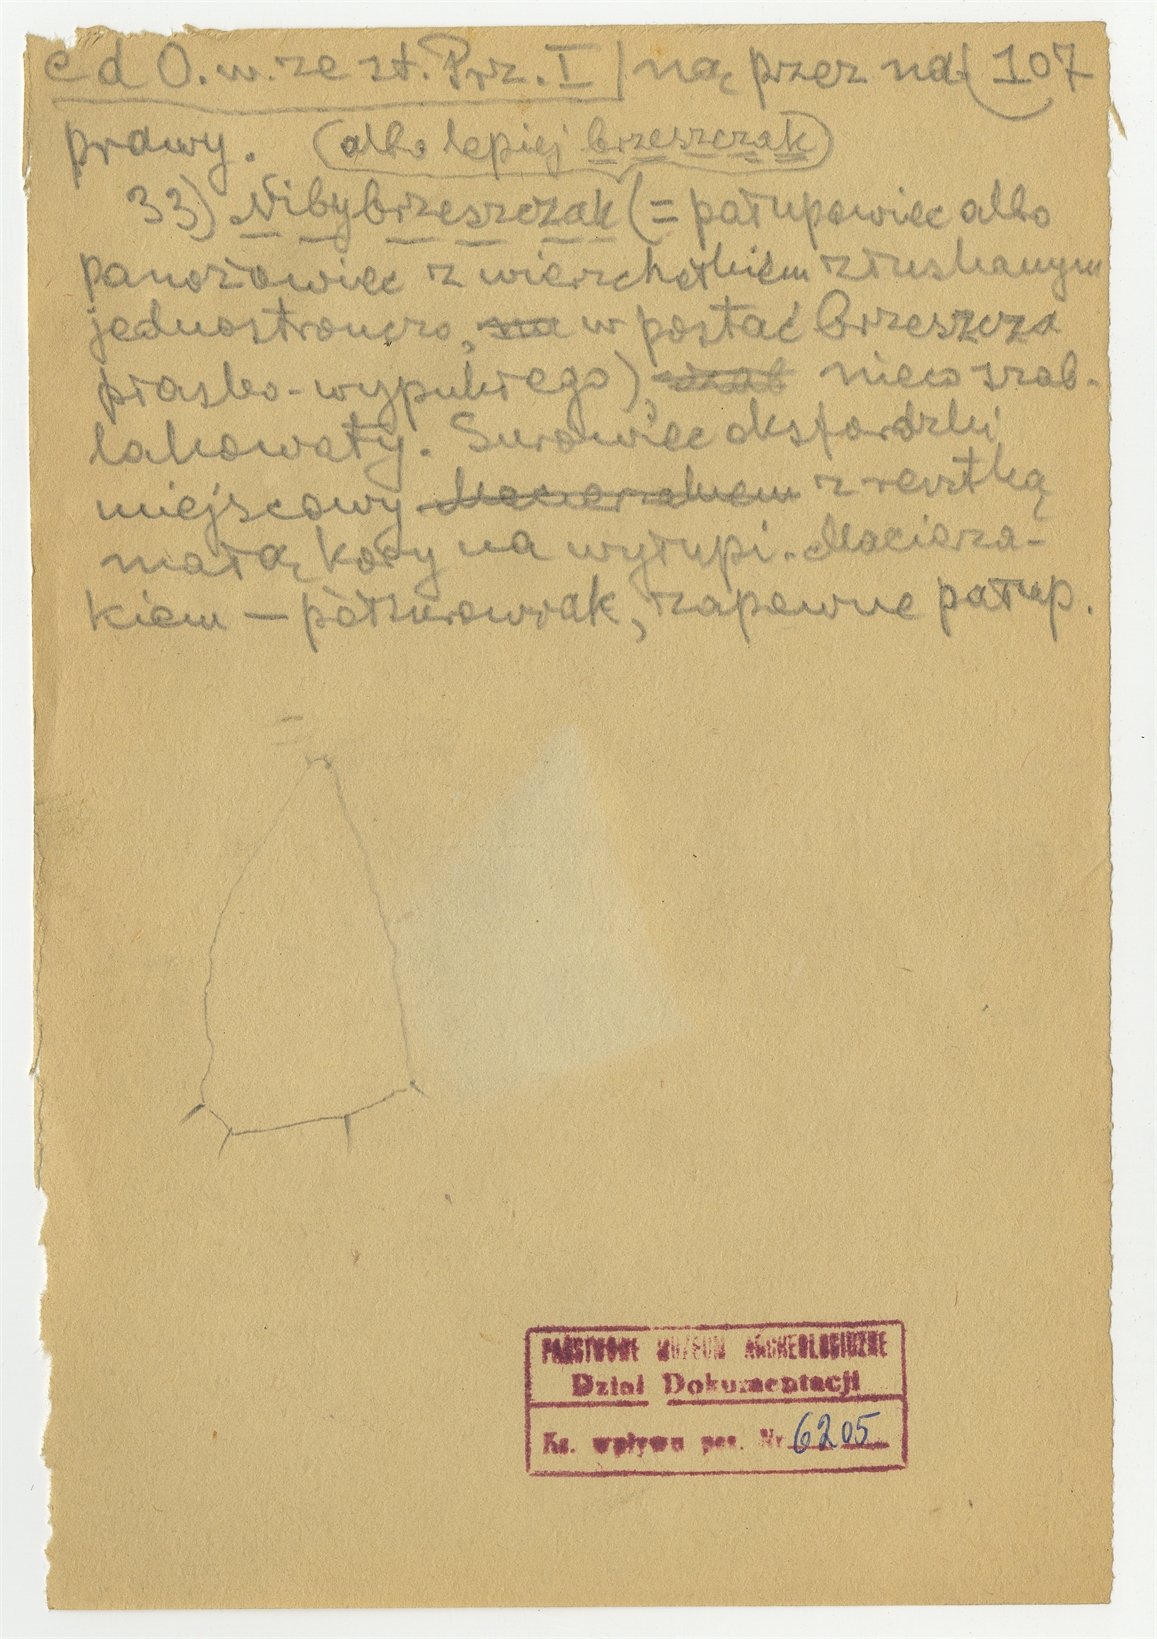 cd O.w. ze st. Prz. I ną przez nd 107
prawy. (albo lepiej brzeszczak)
33) Nibybrzeszczak (= patupowiec albo
panożowiec z wierzchołkiem złuskanym
jednostronczo, w postać brzeszcza
płasko-wypukłego), nieco szab-
lakowaty. Surowiec oksfordzki
miejscowy Macierzakiem z resztką
małą kory na wyłupi. Macierza-
kiem — półsurowiak, zapewne patup.
PAŃSTWOWE MUZEUM ARCHEOLOGICZNE
Dział Dokumentacji
Ks. wpływu poz. Nr 6205